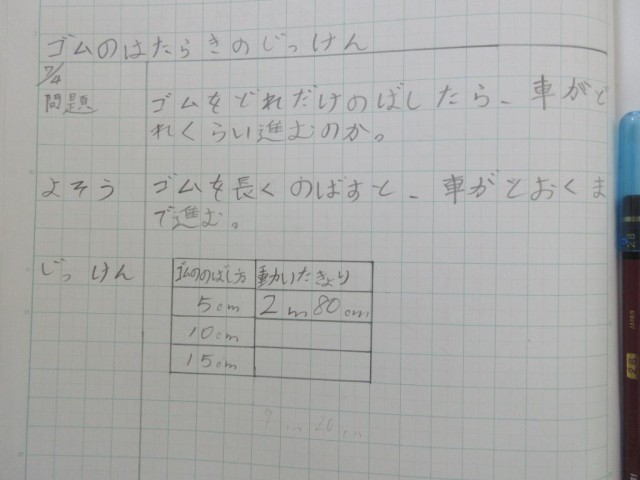 ゴムのはたらきのじっけん
7/4
問題 ゴムをどれだけのばしたら、車がど
れくらい進むのか。
よそう ゴムを長くのばすと、車がとおくま
で進む。
じっけん
ゴムののばし方 動いたきょり
5cm 2m80cm
10cm
15cm